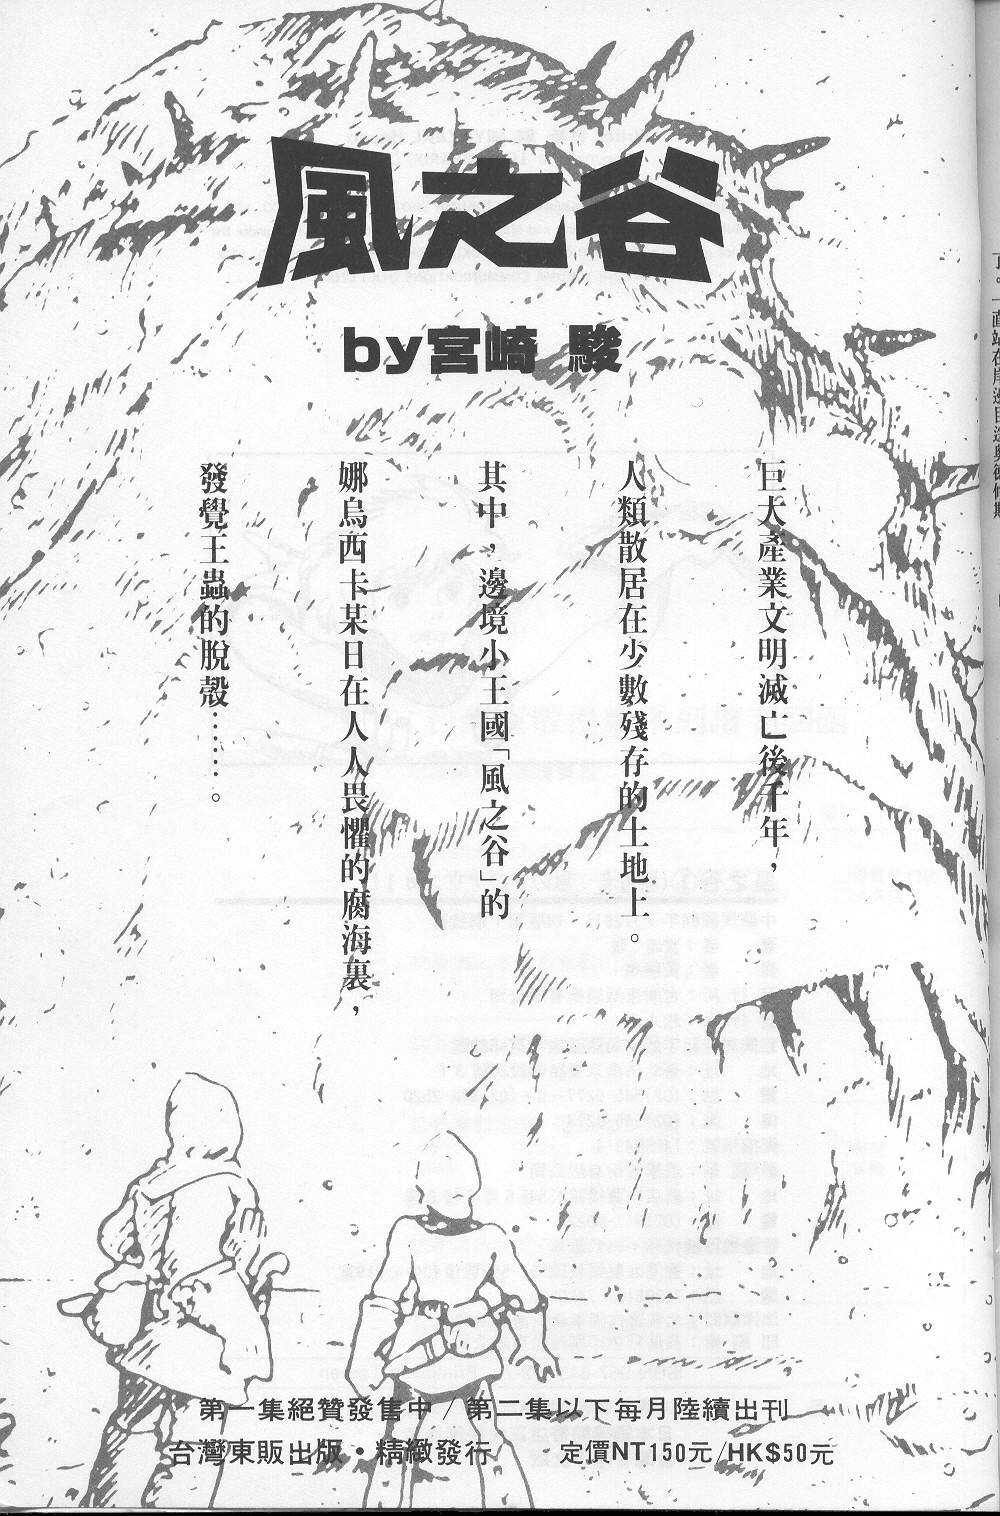 風之谷
by宮崎 駿
巨大產業文明滅亡後千年，
人類散居在少數殘存的土地上。
其中，邊境小王國「風之谷」的
娜烏西卡某日在人人畏懼的腐海裏，
發覺王蟲的脫殼……。
第一集絕贊發售中/第二集以下每月陸續出刊
台灣東販出版·精緻發行 定價NT150元/HK$50元